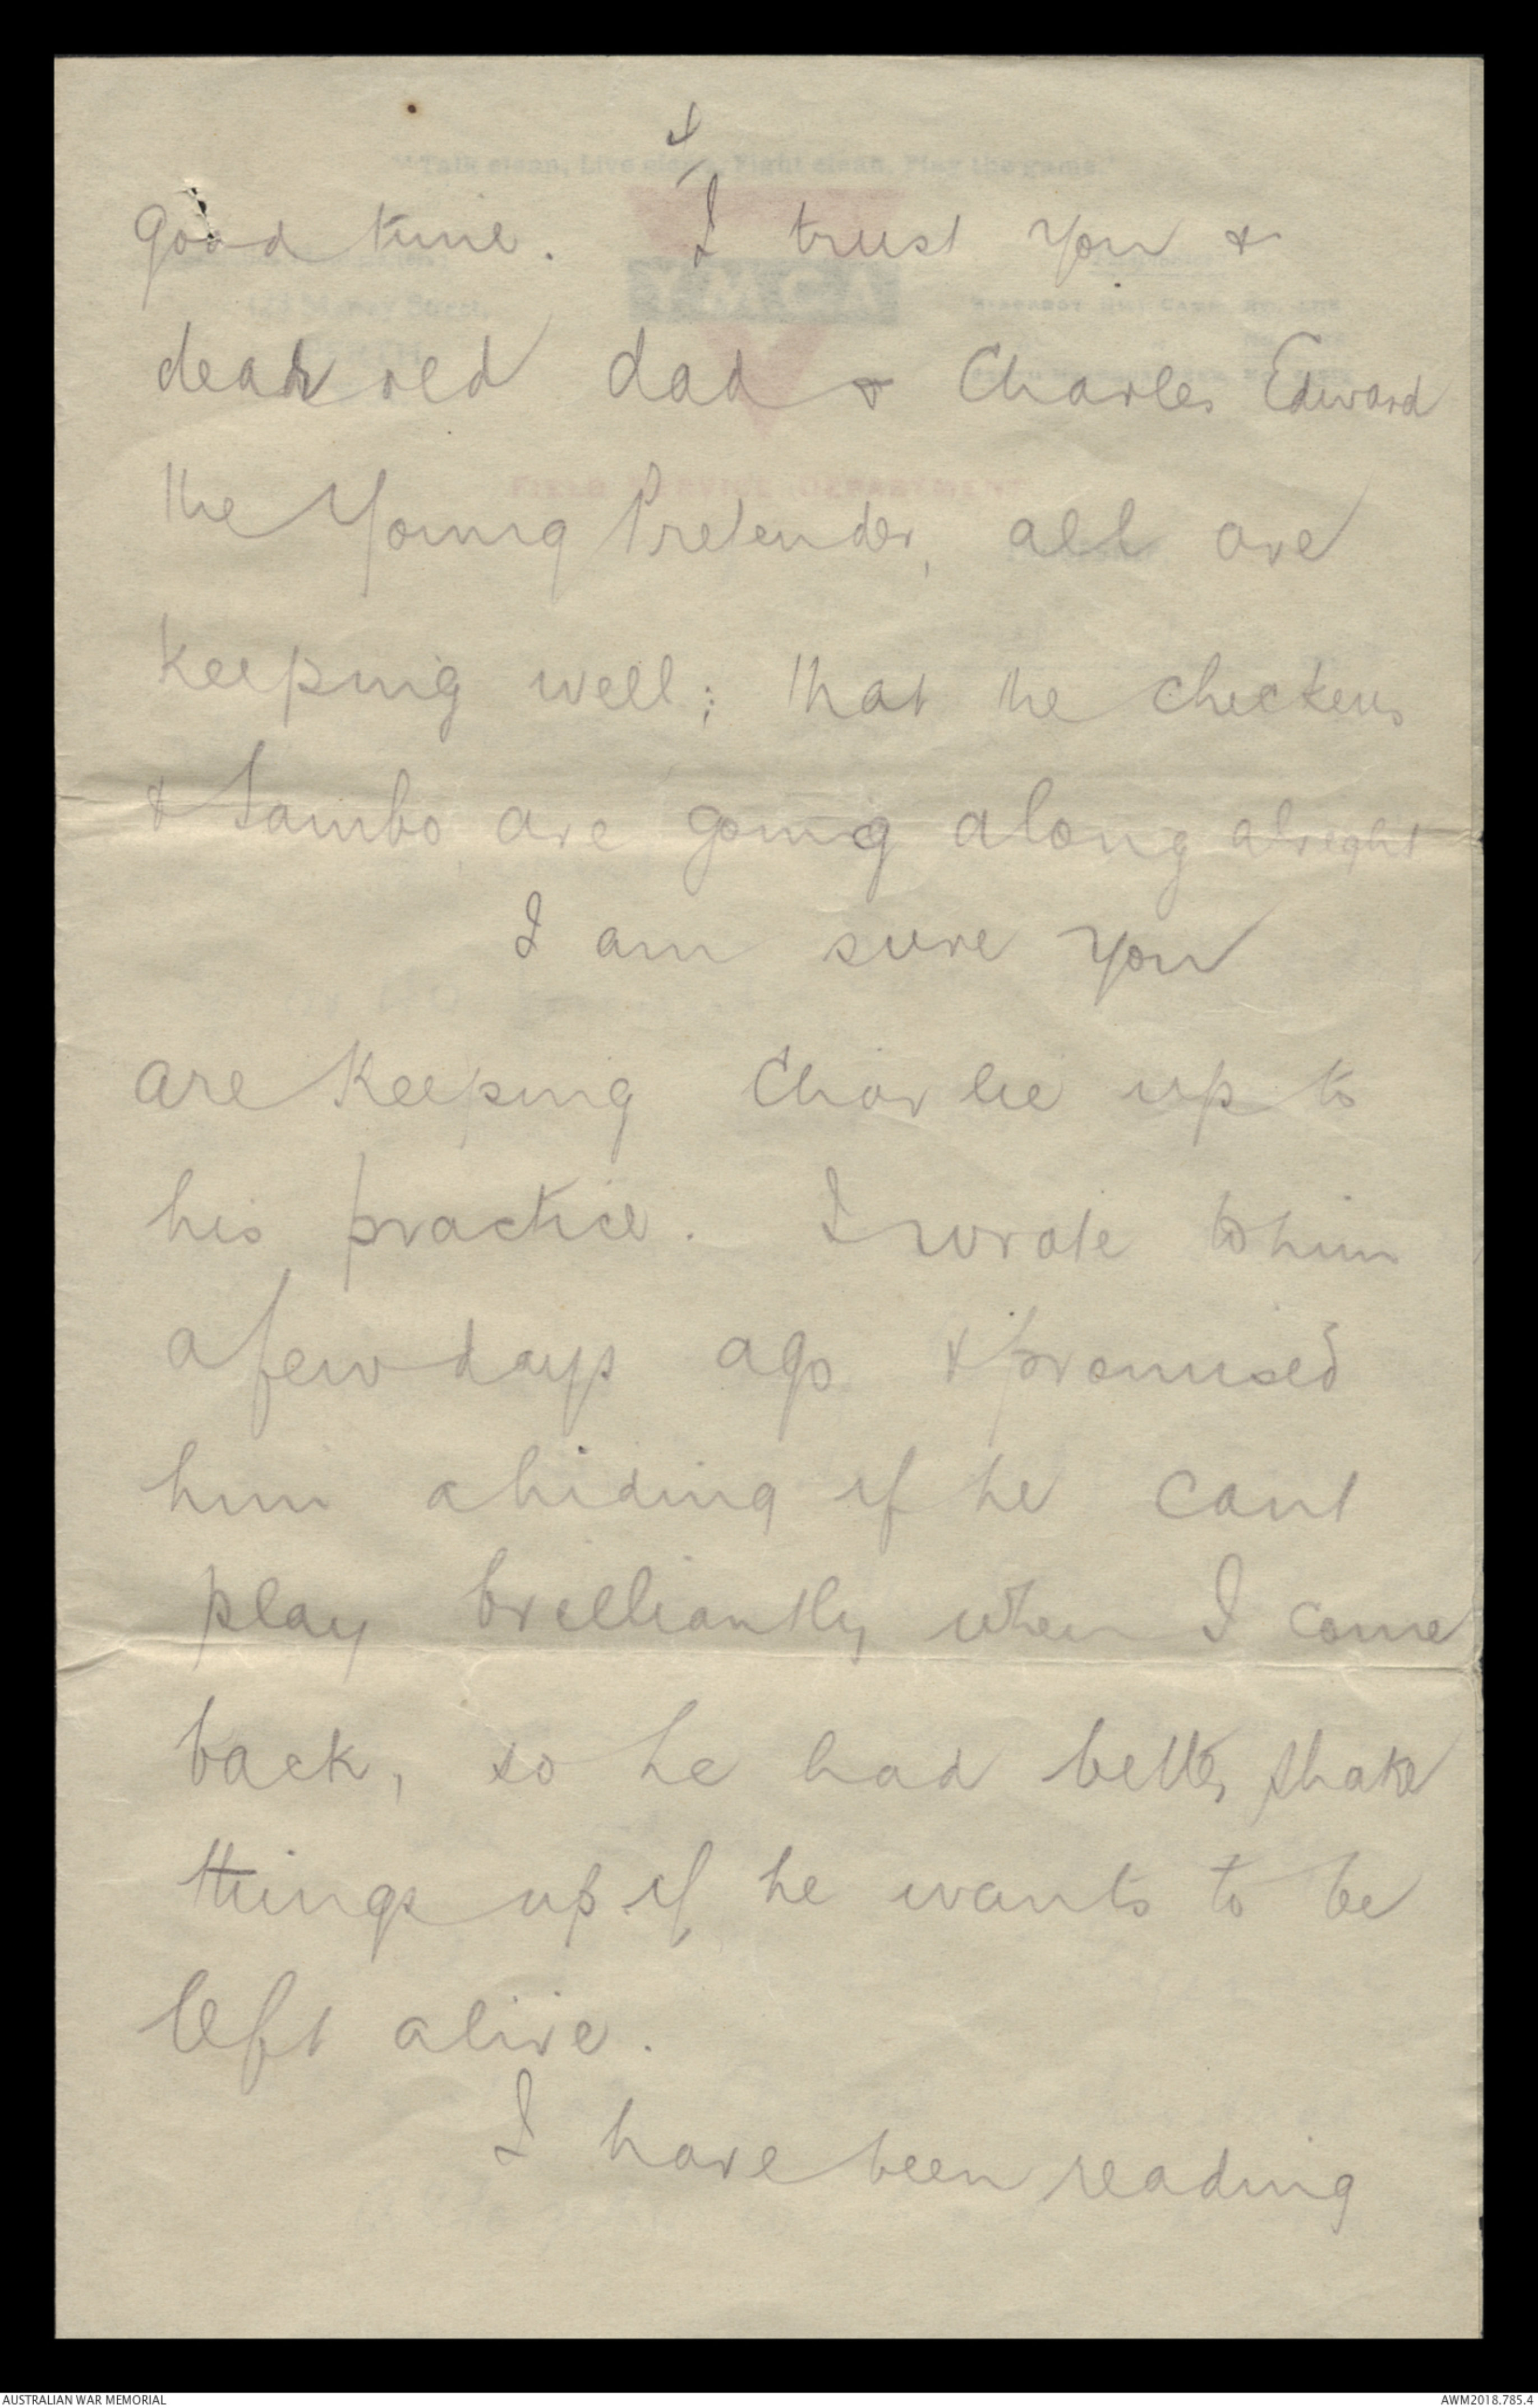 &
good time. I trust you &
dear old dad & Charles Edward
the Young Pretender, all are
keeping well; that the chickens
& Sambo are going along alright
I am sure you
are keeping Charlie up to
his practice. I wrote to him
a few days ago & promised
him a hiding if he cant
play brilliantly when I come
back, so he had better shake
things up if he wants to be
left alive.
I have been reading
AUSTRALIAN WAR MEMORIAL AWM2018.785.4